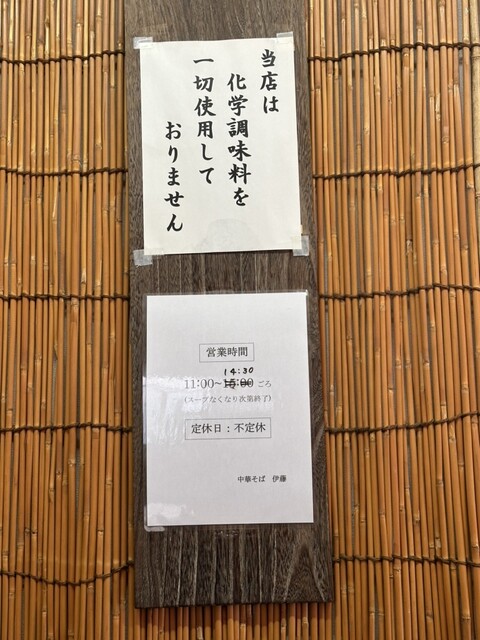 当店は
化学調味料を
一切使用して
おりません
営業時間
14:30
11:00~15:00 ごろ
(スープなくなり次第終了)
定休日：不定休
中華そば 伊藤